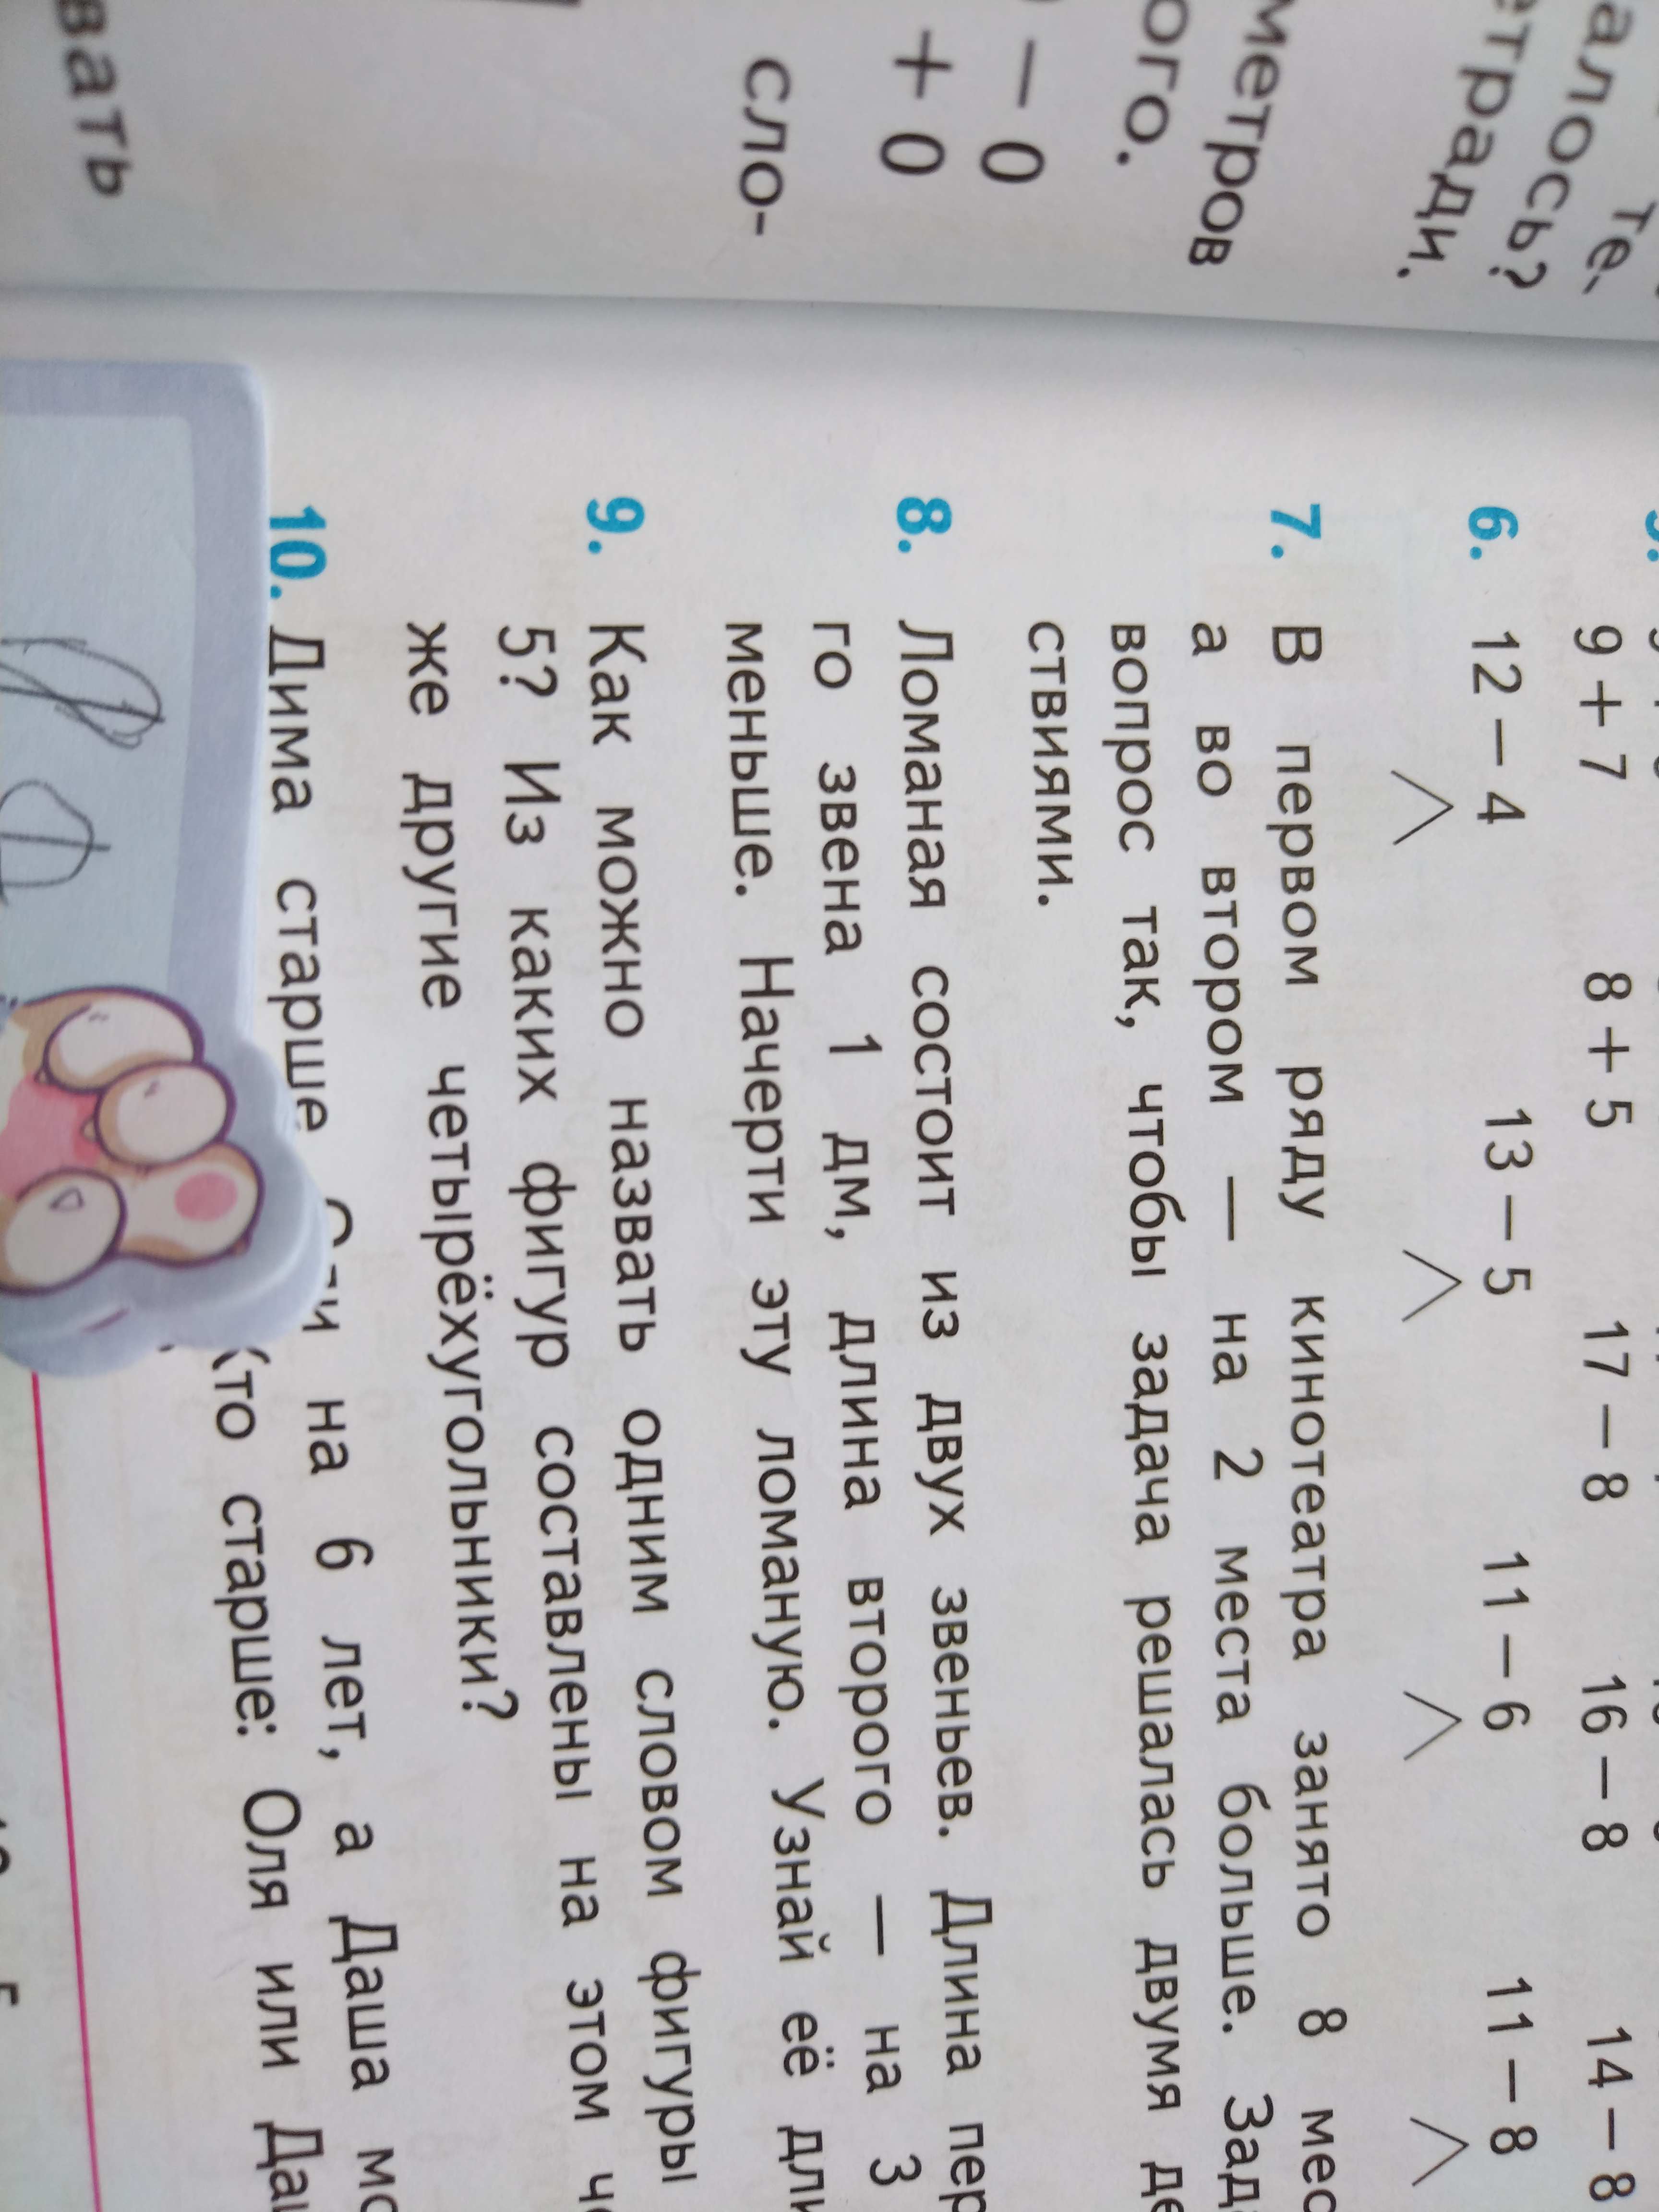 те-
алось?
етради.
метров
ого.
– 0
+ 0
сло-
вать
9 + 7 8 + 5 17 – 8 16 – 8 14 – 8
6. 12 – 4 13 – 5 11 – 6 11 – 8
7. В первом ряду кинотеатра занято 8 мес
а во втором — на 2 места больше. Зад
вопрос так, чтобы задача решалась двумя де
ствиями.
8. Ломаная состоит из двух звеньев. Длина пер
го звена 1 дм, длина второго — на 3
меньше. Начерти эту ломаную. Узнай её дли
9. Как можно назвать одним словом фигуры
5? Из каких фигур составлены на этом че
же другие четырёхугольники?
10. Дима старше на 6 лет, а Даша мо
Кто старше: Оля или Даш